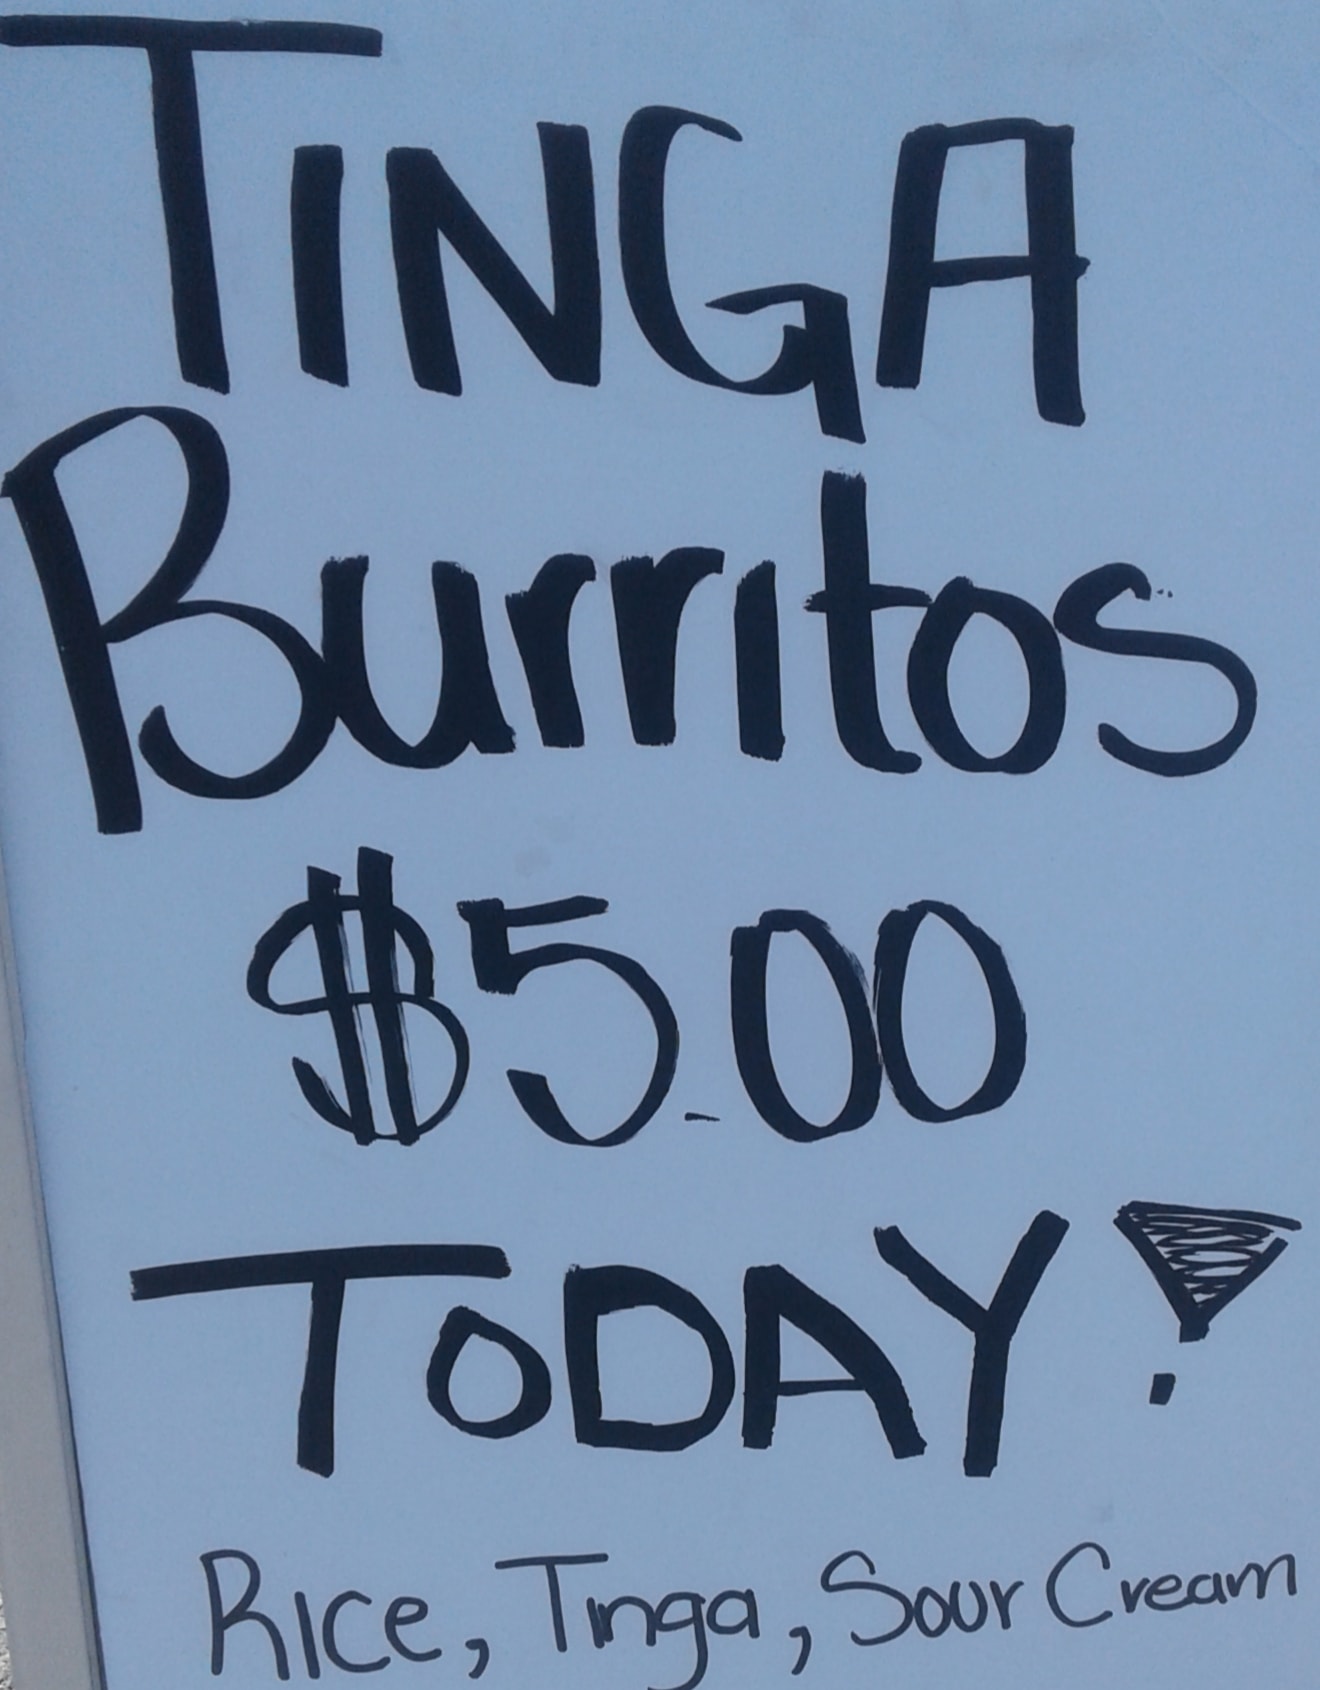 TINGA
Burritos
$5.00
ToDAY!
RIce, Tinga, Sour Cream